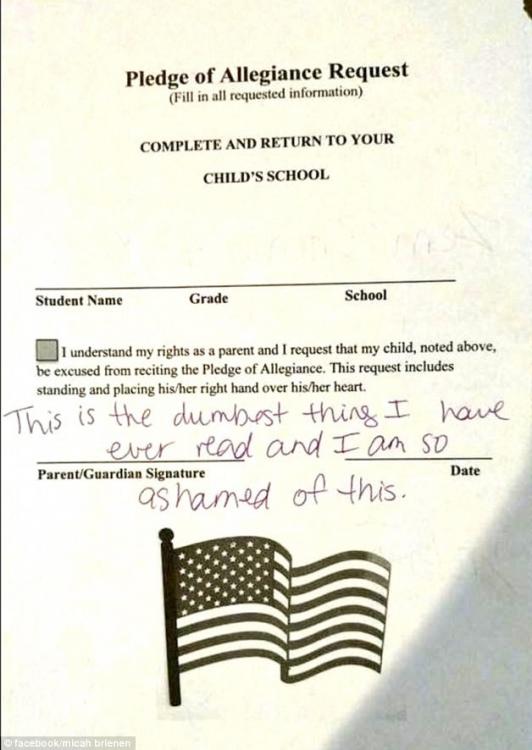 Pledge of Allegiance Request
(Fill in all requested information)
COMPLETE AND RETURN TO YOUR
CHILD'S SCHOOL
Student Name Grade School
I understand my rights as a parent and I request that my child, noted above,
be excused from reciting the Pledge of Allegiance. This request includes
standing and placing his/her right hand over his/her heart.
This is the dumbest thing I have
ever read and I am so
Parent/Guardian Signature Date
ashamed of this.
© facebook/micah brienen